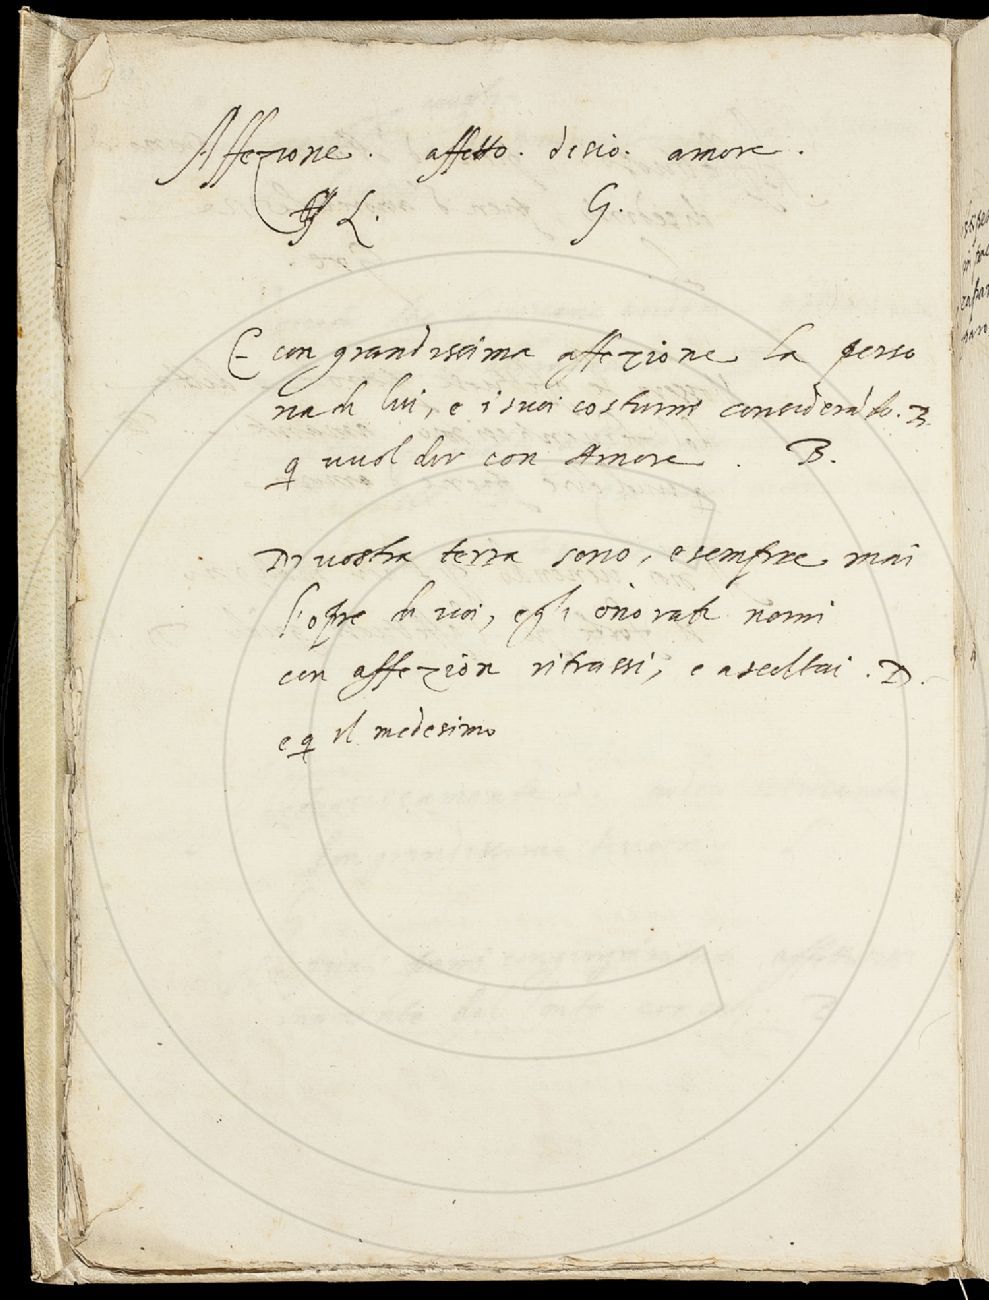 Affezione. affetto. desio. amore.
L. G.
E con grandissima affezione la perso
na di lui, e i suoi costumi considerato. B.
q vuol dir con Amore. B.
Di vostra terra sono, e sempre mai
l'opre di voi, e gli onorati nomi
con affezion ritrassi, e ascoltai. D.
e q il medesimo